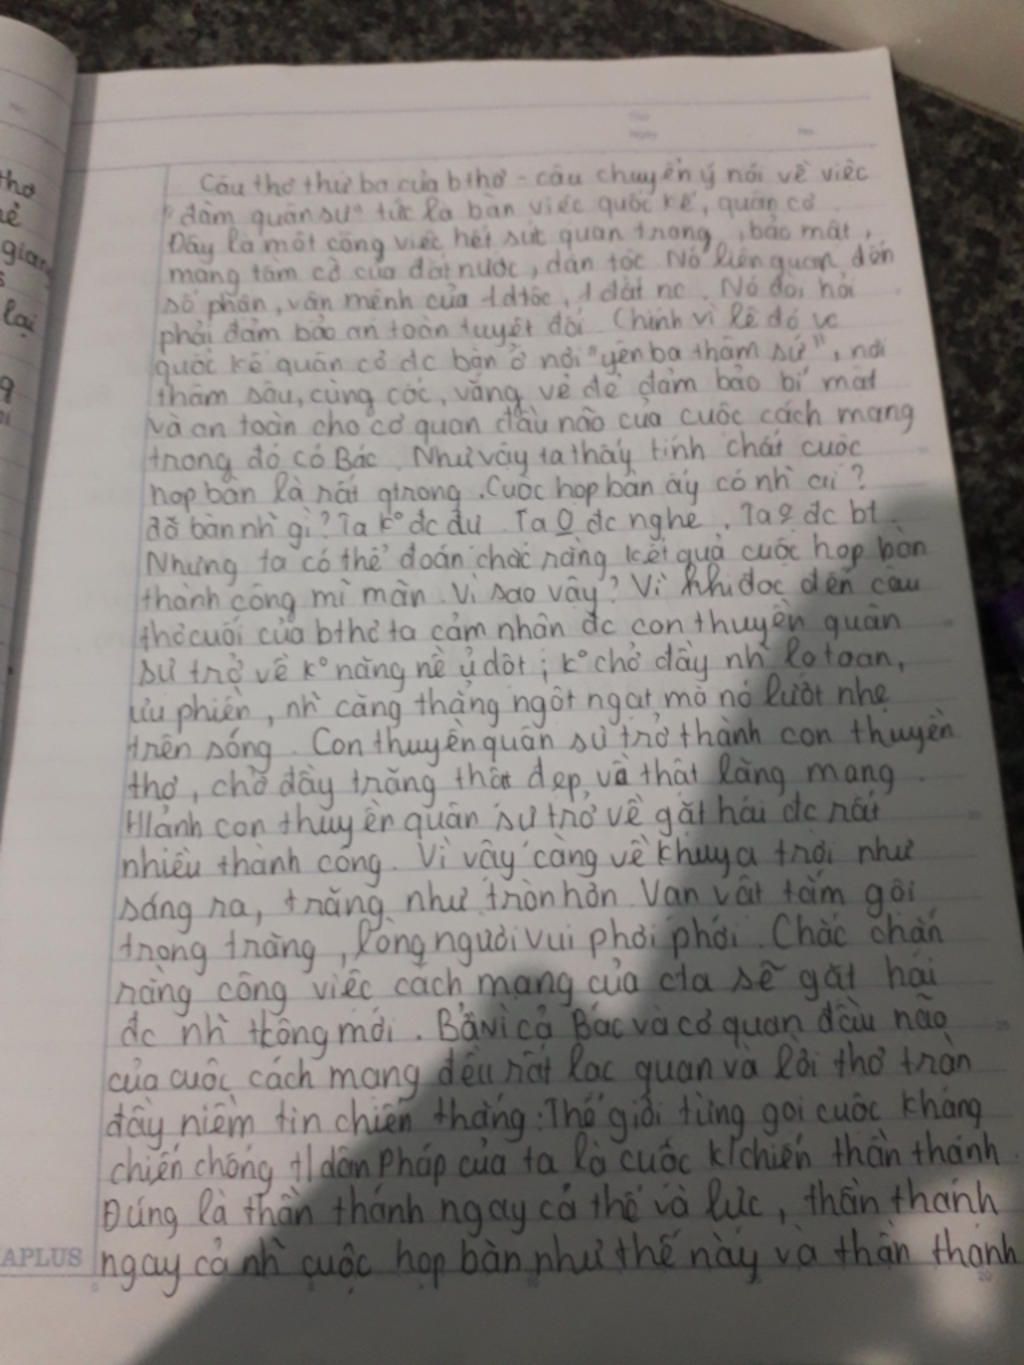 Câu thơ thứ ba của bthơ - câu chuyển ý nói về việc
"đàm quân sự" tức là bàn việc quốc kế, quân cơ.
Đây là một công việc hết sức quan trọng, bảo mật,
mang tầm cỡ của đất nước, dân tộc. Nó liên quan đến
số phận, vận mệnh của 1 dtộc, 1 đất nc. Nó đòi hỏi
phải đảm bảo an toàn tuyệt đối. Chính vì lẽ đó vc
quốc kế quân cơ đc bàn ở nơi "yên ba thâm sứ", nơi
thâm sâu, cùng cốc, vắng vẻ để đảm bảo bí mật
và an toàn cho cơ quan đầu não của cuộc cách mạng
trong đó có Bác. Như vậy ta thấy tính chất cuộc
họp bàn là rất qtrọng. Cuộc họp bàn ấy có nh̀ ai?
đã bàn nh̀ gì? Ta k° đc dự. Ta đc nghe. Ta đc bt.
Nhưng ta có thể đoán chắc rằng kết quả cuộc họp bàn
thành công mĩ mãn. Vì sao vậy? Vì khi đọc đến câu
thơ cuối của bthơ ta cảm nhận đc con thuyền quân
sự trở về k° nặng nề ủ dột; k° chở đầy nh̀ lo toan,
ưu phiền, nh̀ căng thẳng ngột ngạt mà nó lướt nhẹ
trên sóng. Con thuyền quân sự trở thành con thuyền
thơ, chở đầy trăng thật đẹp và thật lãng mạng.
Hlảnh con thuyền quân sự trở về gặt hái đc rất
nhiều thành công. Vì vậy càng về khuya trời như
sáng ra, trăng như tròn hơn. Vạn vật tắm gội
trong trăng, lòng người vui phơi phới. Chắc chắn
rằng công việc cách mạng của cta sẽ gặt hái
đc nh̀ tcông mới. Bởi vì cả Bác và cơ quan đầu não
của cuộc cách mạng đều rất lạc quan và lời thơ tràn
đầy niềm tin chiến thắng. Thế giới từng gọi cuộc kháng
chiến chống t/dân Pháp của ta là cuộc k/chiến thần thánh.
Đúng là thần thánh ngay cả thế và lực, thần thánh
ngay cả nh̀ cuộc họp bàn như thế này và thần thánh
APLUS
thơ
gian
lại